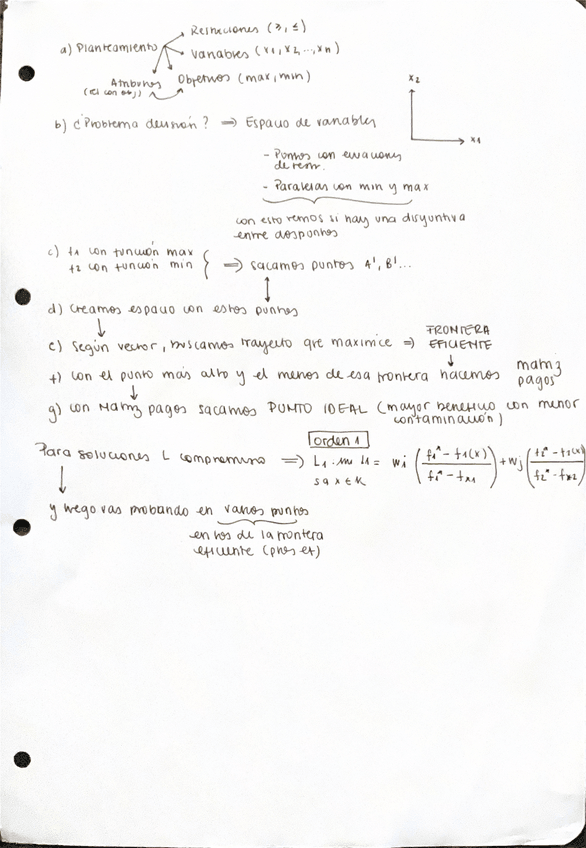 Restricciones (≥, ≤)
a) Planteamiento
Variables (x1, x2, ..., xn)
Atributos Objetivos (max, min)
b) ¿Problema decisión? ⇒ Espacio de variables
x2
x1
- Puntos con ecuaciones
de restr.
- Paralelas con min y max
con esto vemos si hay una disyuntiva
entre dos puntos
c) f1 con función max
f2 con función min
⇒ sacamos puntos A', B'...
d) Creamos espacio con estos puntos
e) Según vector, buscamos trayecto que maximice ⇒ FRONTERA
EFICIENTE
f) con el punto más alto y el menos de esa frontera hacemos matriz
pagos
g) con Matriz pagos sacamos PUNTO IDEAL (mayor beneficio con menor
contaminación)
orden 1
Para soluciones L compromiso ⇒ L1. min L1 = wi (f1* - f1(x) / f1* - f*1) + wj (f2* - f2(x) / f2* - f*2
sa x ∈ K
y luego vas probando en varios puntos
en los de la frontera
eficiente (ptos ef)